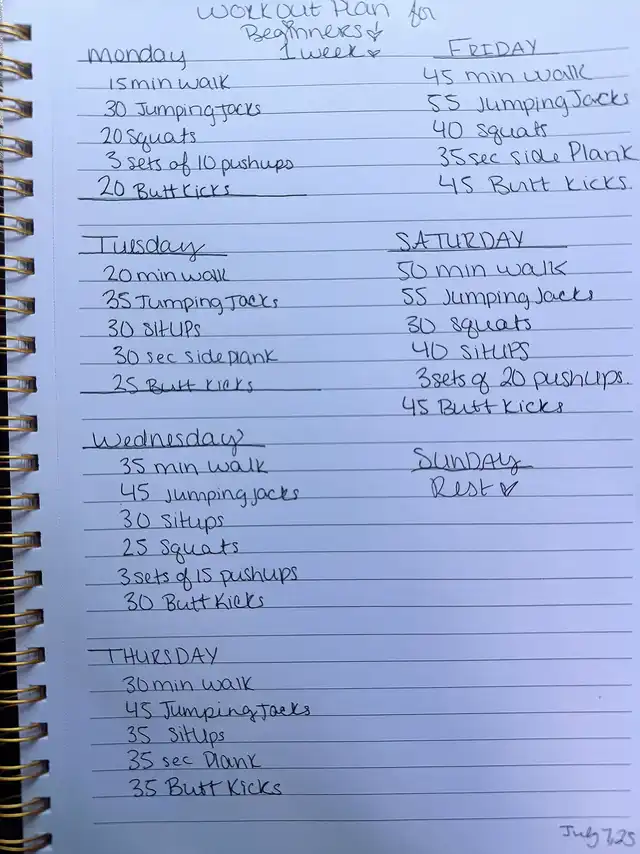 Workout Plan for
Beginners
1 week
Monday
15 min walk
30 Jumping Jacks
20 Squats
3 sets of 10 pushups
20 Butt Kicks
Tuesday
20 min walk
35 Jumping Jacks
30 Situps
30 sec side plank
25 Butt Kicks
Wednesday
35 min walk
45 Jumping jacks
30 Situps
25 Squats
3 sets of 15 pushups
30 Butt Kicks
THURSDAY
30 min walk
45 Jumping Jacks
35 Situps
35 sec Plank
35 Butt Kicks
FRIDAY
45 min walk
55 Jumping Jacks
40 Squats
35 sec side Plank
45 Butt Kicks
SATURDAY
50 min walk
55 Jumping Jacks
30 Squats
40 Situps
3 sets of 20 pushups.
45 Butt Kicks
SUNDAY
Rest
July 7, 25